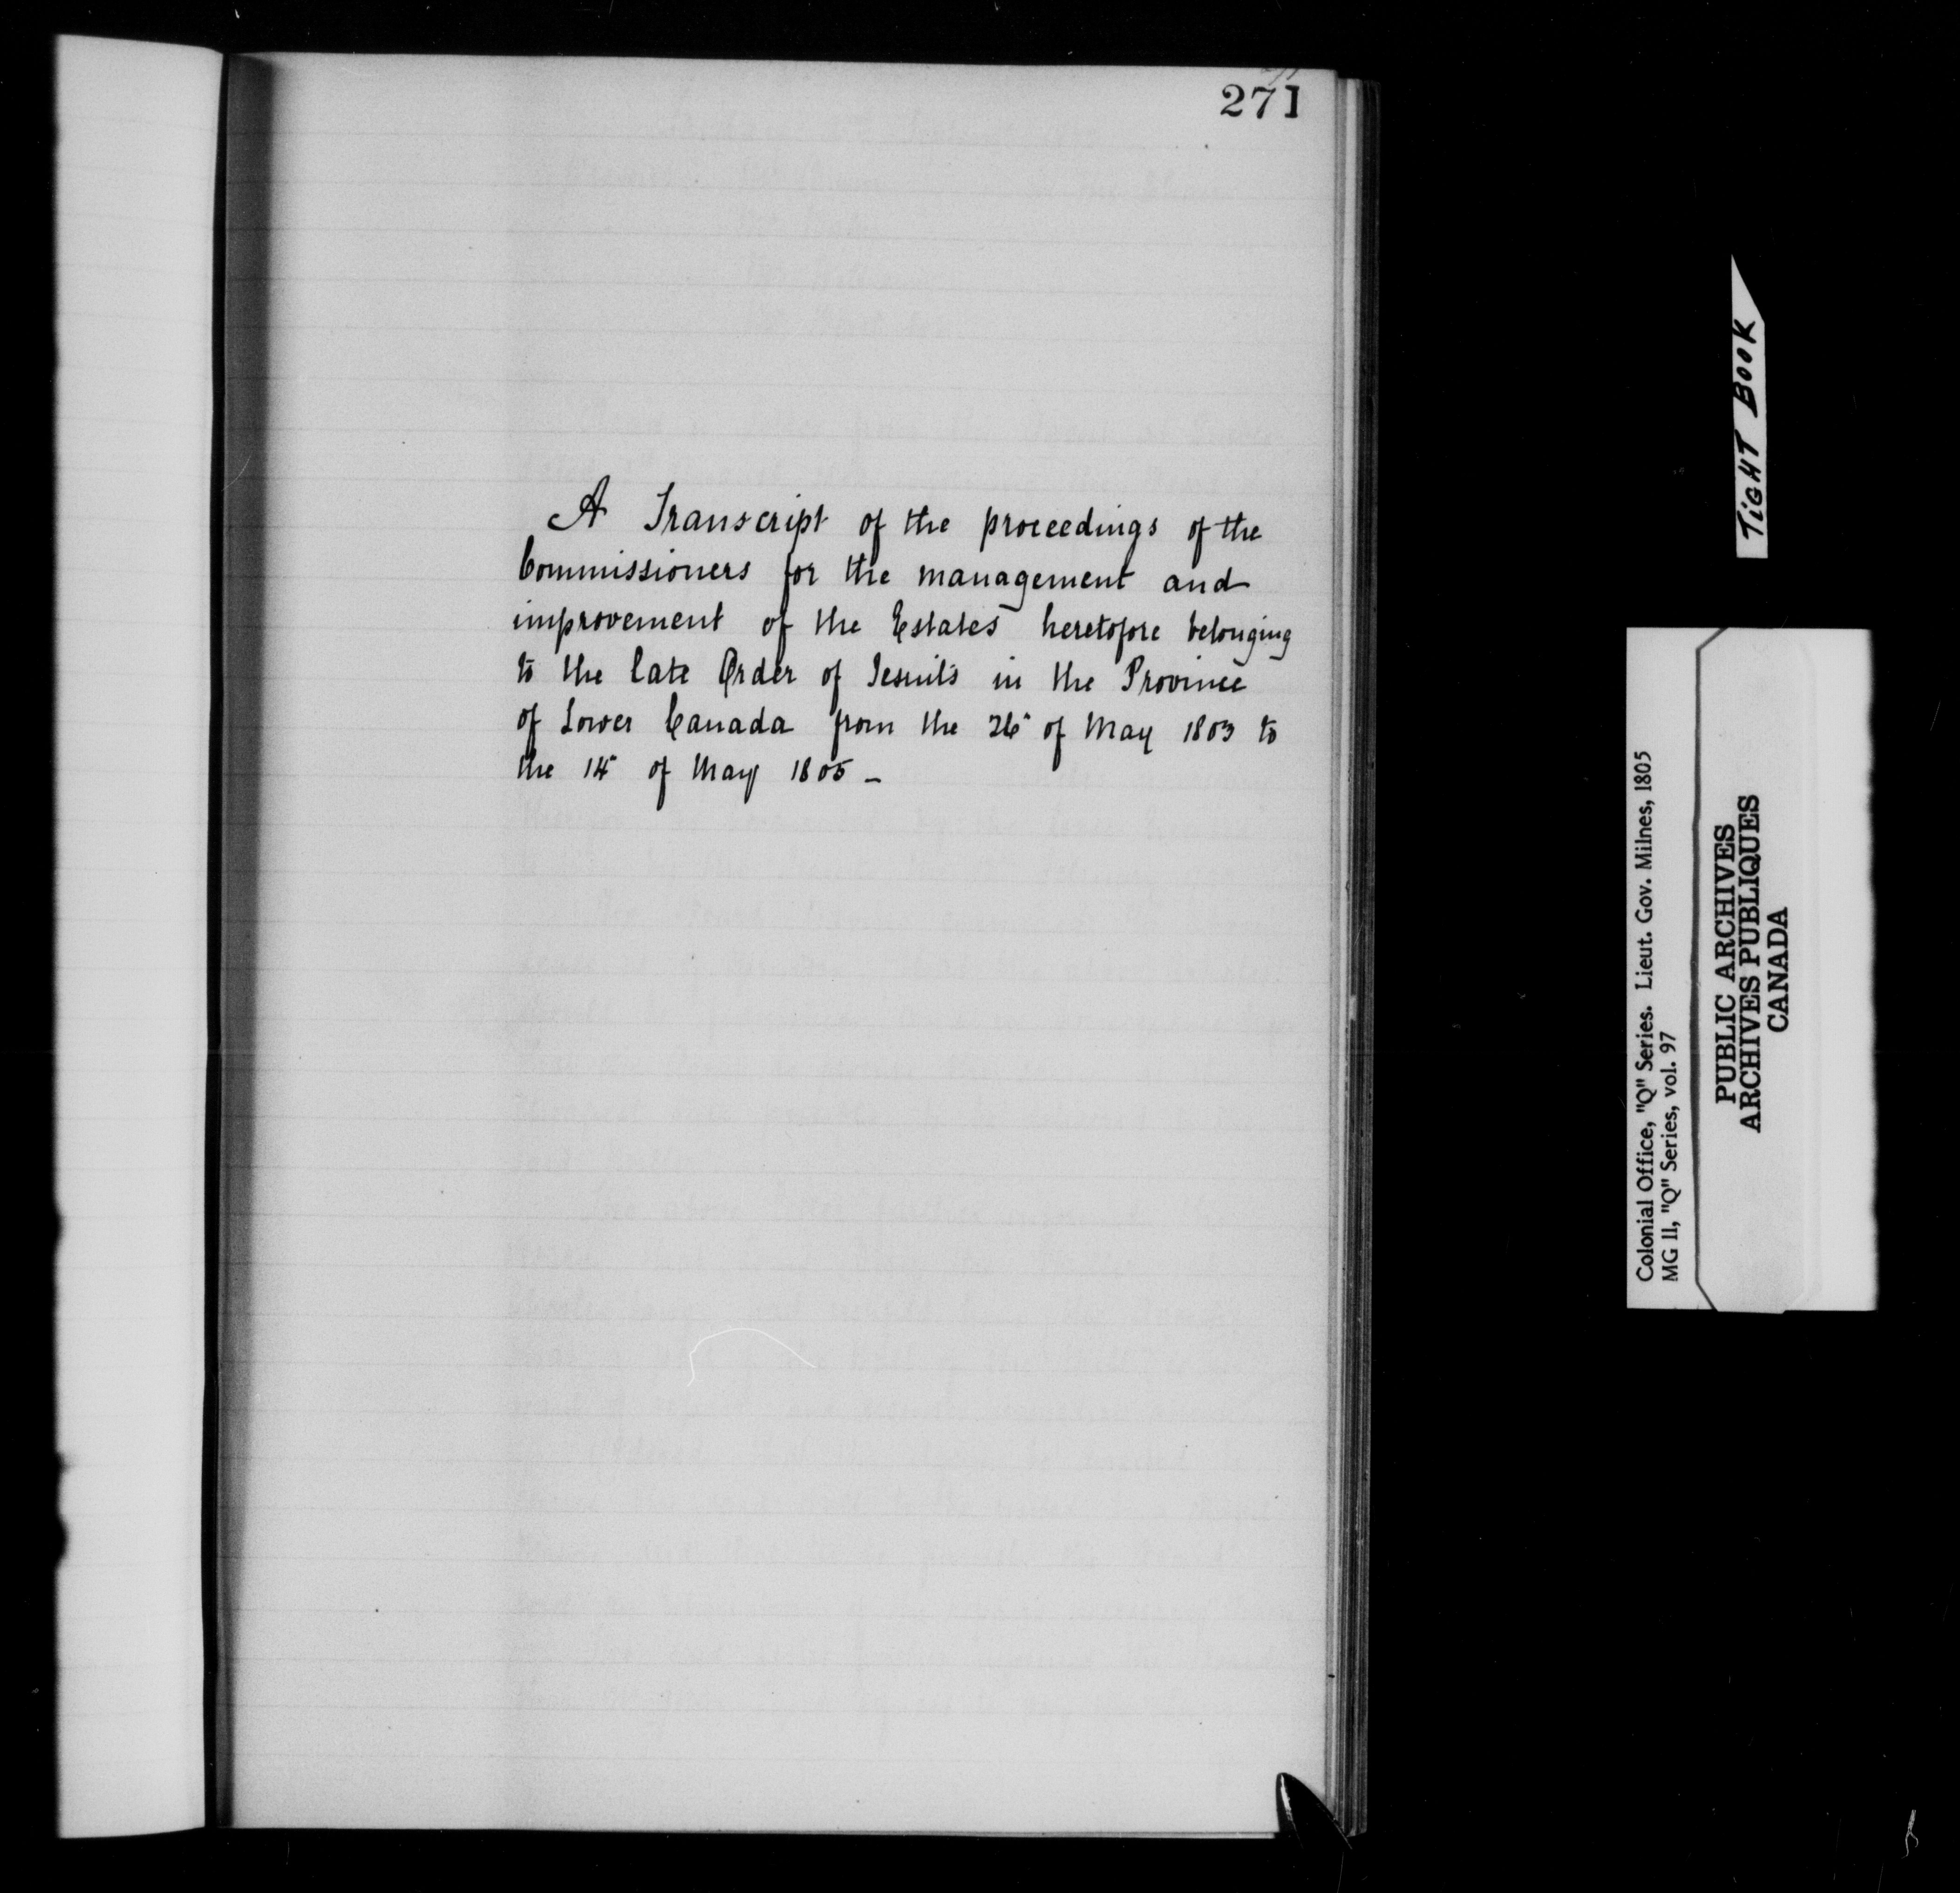 271
A Transcript of the proceedings of the
Commissioners for the management and
improvement of the Estates heretofore belonging
to the late Order of Jesuits in the Province
of Lower Canada from the 26 of May 1803 to
the 14 of May 1805 -
TIGHT BOOK
Colonial Office, "Q" Series. Lieut. Gov. Milnes, 1805
MG 11, "Q" Series, vol. 97
PUBLIC ARCHIVES
ARCHIVES PUBLIQUES
CANADA